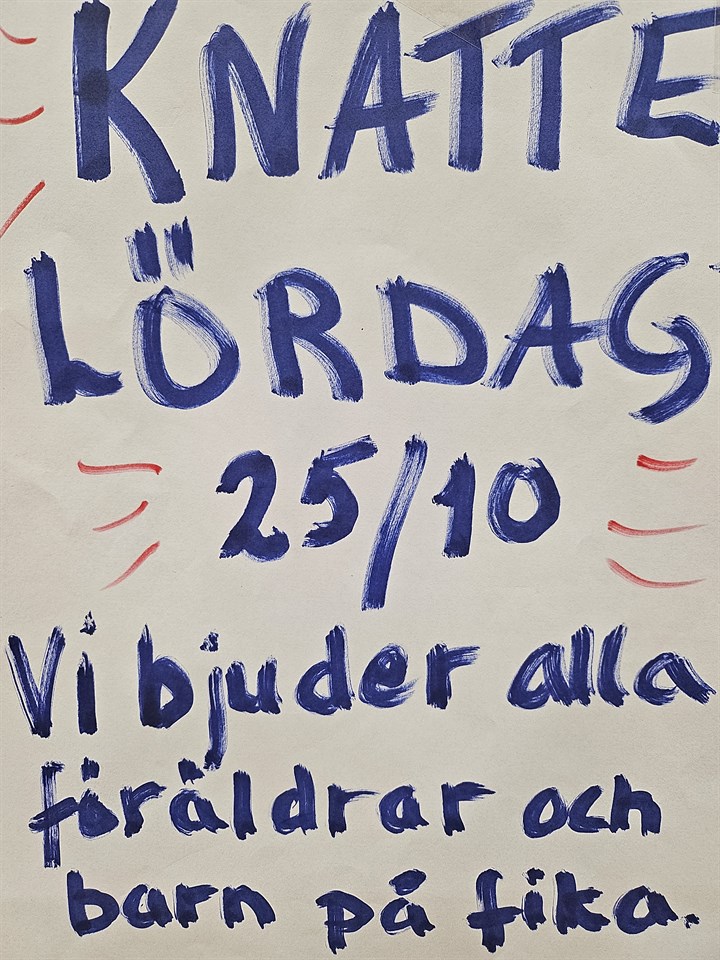 KNATTE
LÖRDAG
25/10
Vi bjuder alla
föräldrar och
barn på fika.